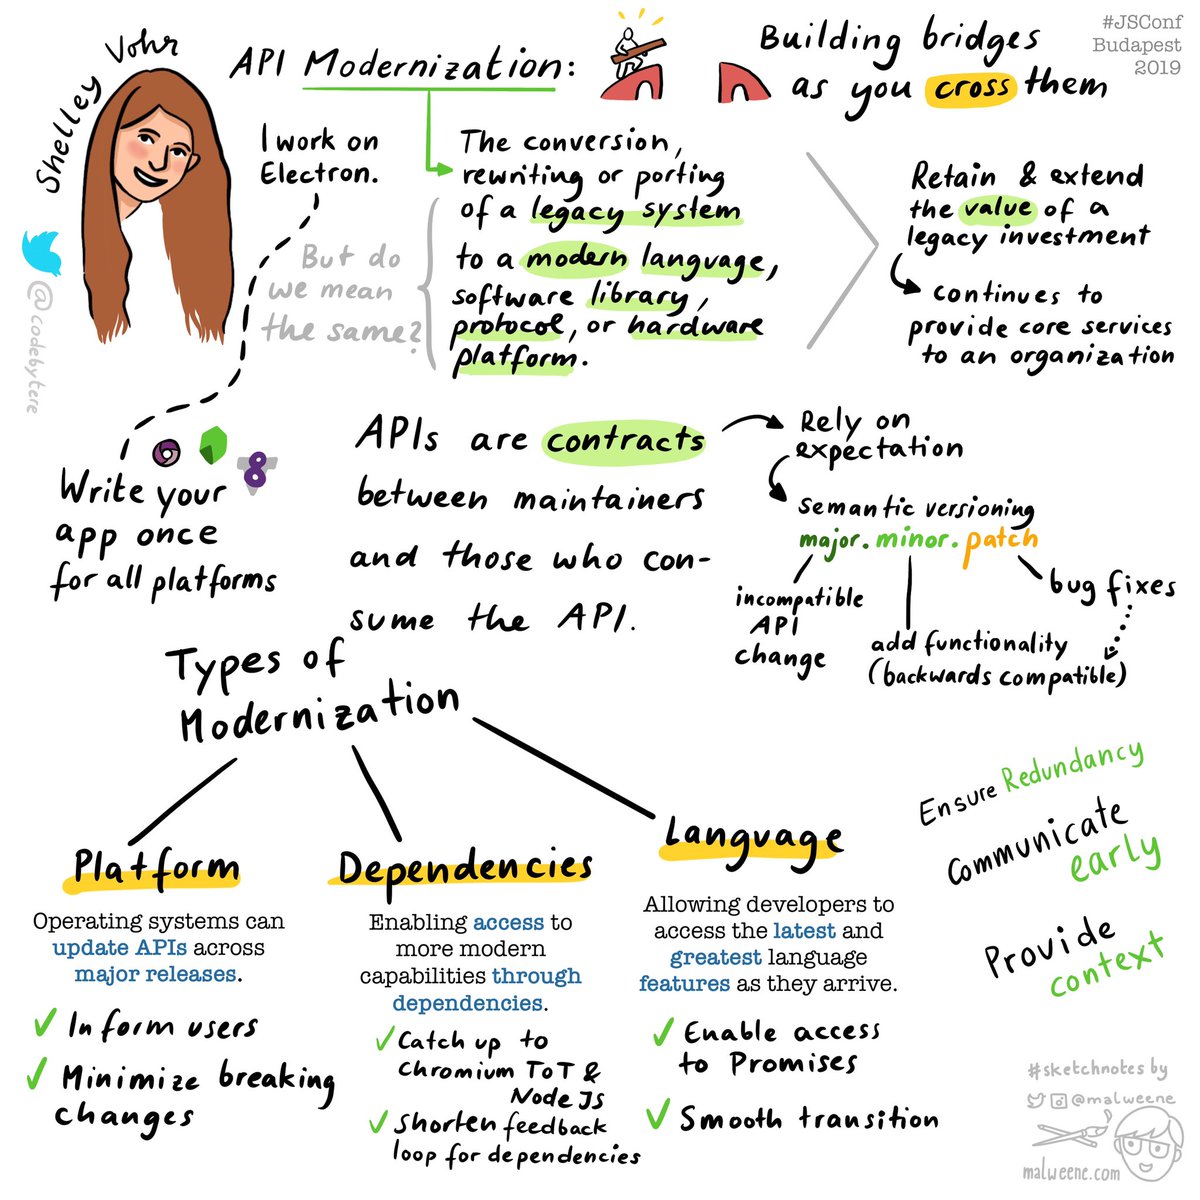 Shelley Vohr
@codebytere
API Modernization:
Building bridges
as you cross them
#JSConf
Budapest
2019
I work on
Electron.
But do
we mean
the same?
The conversion,
rewriting or porting
of a legacy system
to a modern language,
software library,
protocol, or hardware
platform.
Retain & extend
the value of a
legacy investment
continues to
provide core services
to an organization
Write your
app once
for all platforms
8
APIs are contracts
between maintainers
and those who con-
sume the API.
Rely on
expectation
semantic versioning
major. minor. patch
incompatible
API
change
add functionality
(backwards compatible)
bug fixes
Types of
Modernization
Platform
Operating systems can
update APIs across
major releases.
Inform users
Minimize breaking
changes
Dependencies
Enabling access to
more modern
capabilities through
dependencies.
Catch up to
Chromium ToT &
Node JS
Shorten feedback
loop for dependencies
Language
Allowing developers to
access the latest and
greatest language
features as they arrive.
Enable access
to Promises
Smooth transition
Ensure Redundancy
Communicate
early
Provide
context
#sketchnotes by
@malweene
malweene.com